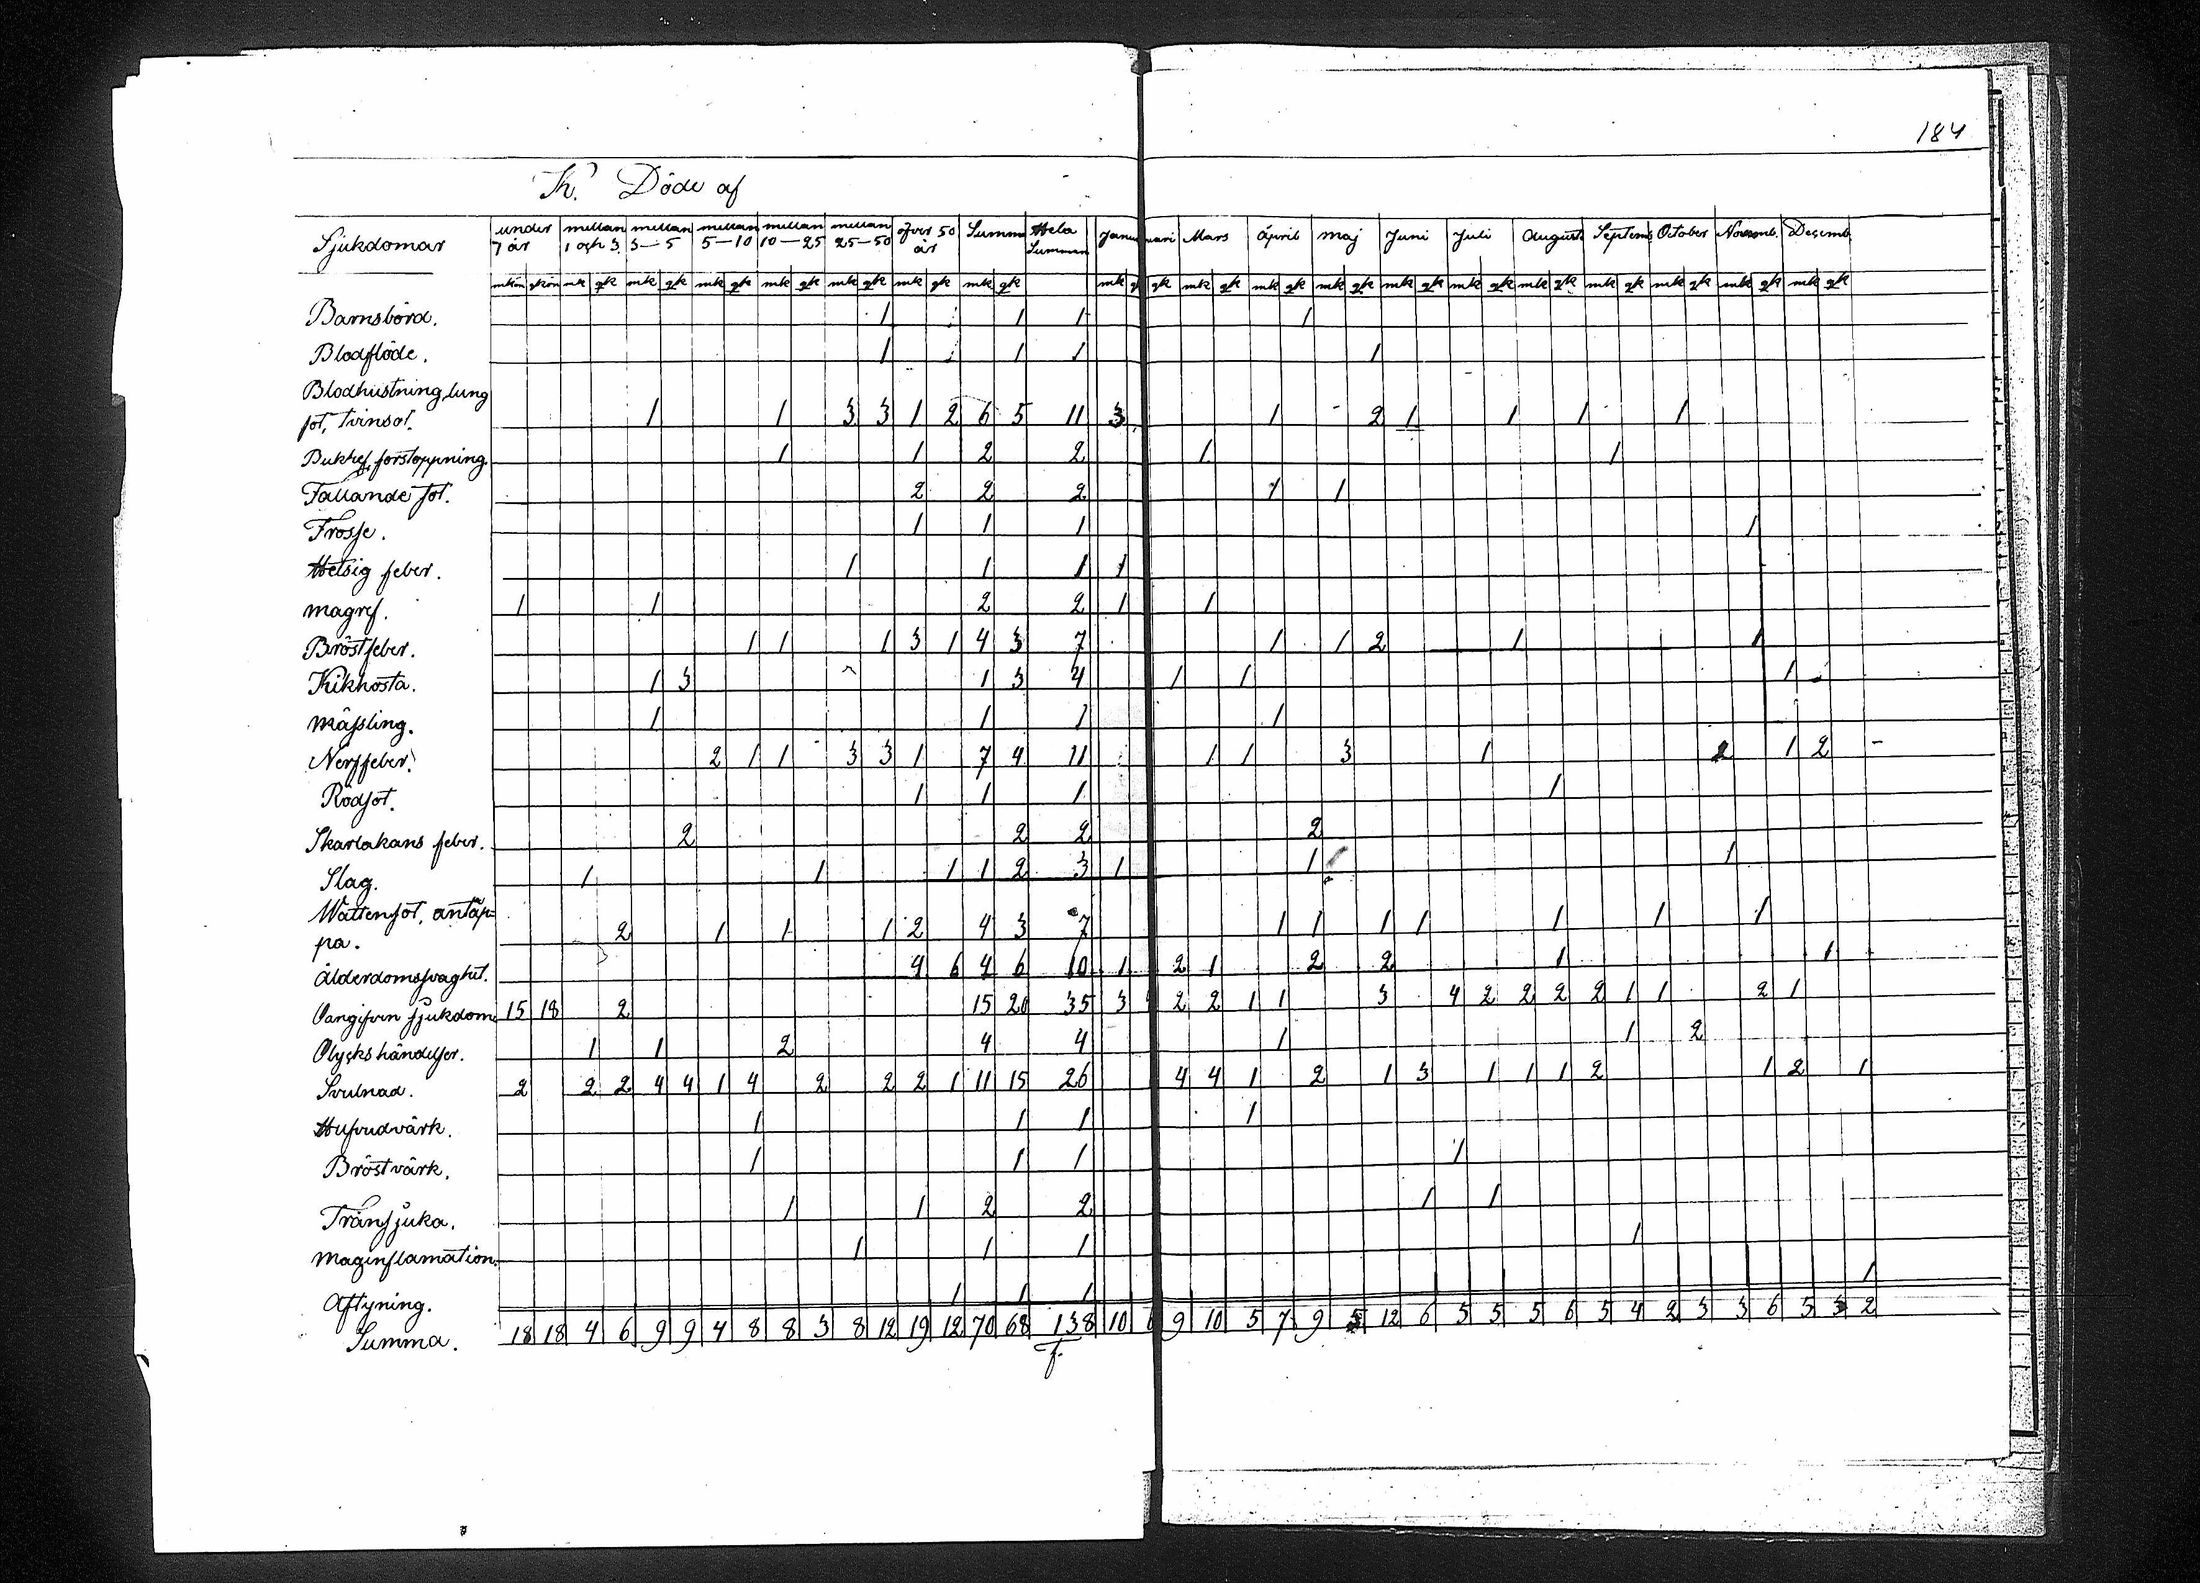 184
Th. Döde af
Sjukdomar under 7 år mellan 1 och 3 mellan 3–5 mellan 5–10 mellan 10–25 mellan 25–50 öfver 50 år Summa Hela Summan Januari Mars April Maj Juni Juli August Septemb October Novemb. Decemb.
mkön qkön mk qk mk qk mk qk mk qk mk qk mk qk mk qk mk qk mk qk mk qk mk qk mk qk mk qk mk qk mk qk mk qk mk qk mk qk
Barnsbörd. 1 1 1 1
Blodflöde. 1 1 1 1
Blodhustning, lung
sot, tvinsot. 1 1 3 3 1 2 6 5 11 3 1 2 1 1 1 1
Bukref, förstoppning. 1 1 2 2 1 1
Fallande sot. 2 2 2 1 1
Frossе. 1 1 1 1
Hetsig feber. 1 1 1 1
Magref. 1 1 2 2 1 1
Bröstfeber. 1 1 1 3 1 4 3 7 1 1 2 1 1
Kikhosta. 1 3 1 3 4 1 1 1
Mässling. 1 1 1 1
Nerffeber. 2 1 1 3 3 1 7 4 11 1 1 3 1 2 1 2
Rödsot. 1 1 1 1
Skarlakans feber. 2 2 2 2
Slag. 1 1 1 1 2 3 1 1 1
Wattensot, antäp=
pa. 2 1 1 1 2 4 3 7 1 1 1 1 1 1 1
Ålderdomssvaghet. 4 6 4 6 10 1 2 1 2 2 1 1
Oangifven sjukdom 15 18 2 15 20 35 3 2 2 1 1 3 4 2 2 2 2 1 1 2 1
Olyckshändelser. 1 1 2 4 4 1 1 2
Svulnad. 2 2 2 4 4 1 4 2 2 2 1 11 15 26 4 4 1 2 1 3 1 1 1 2 1 2 1
Hufvudvärk. 1 1 1 1
Bröstvärk. 1 1 1 1
Trånsjuka. 1 1 2 2 1 1
Maginflamation. 1 1 1 1
Aftyning. 1 1 1 1
Summa. 18 18 4 6 9 9 4 8 8 3 8 12 19 12 70 68 138 10 9 10 5 7 9 5 12 6 3 5 5 6 5 4 2 3 3 6 5 3 2